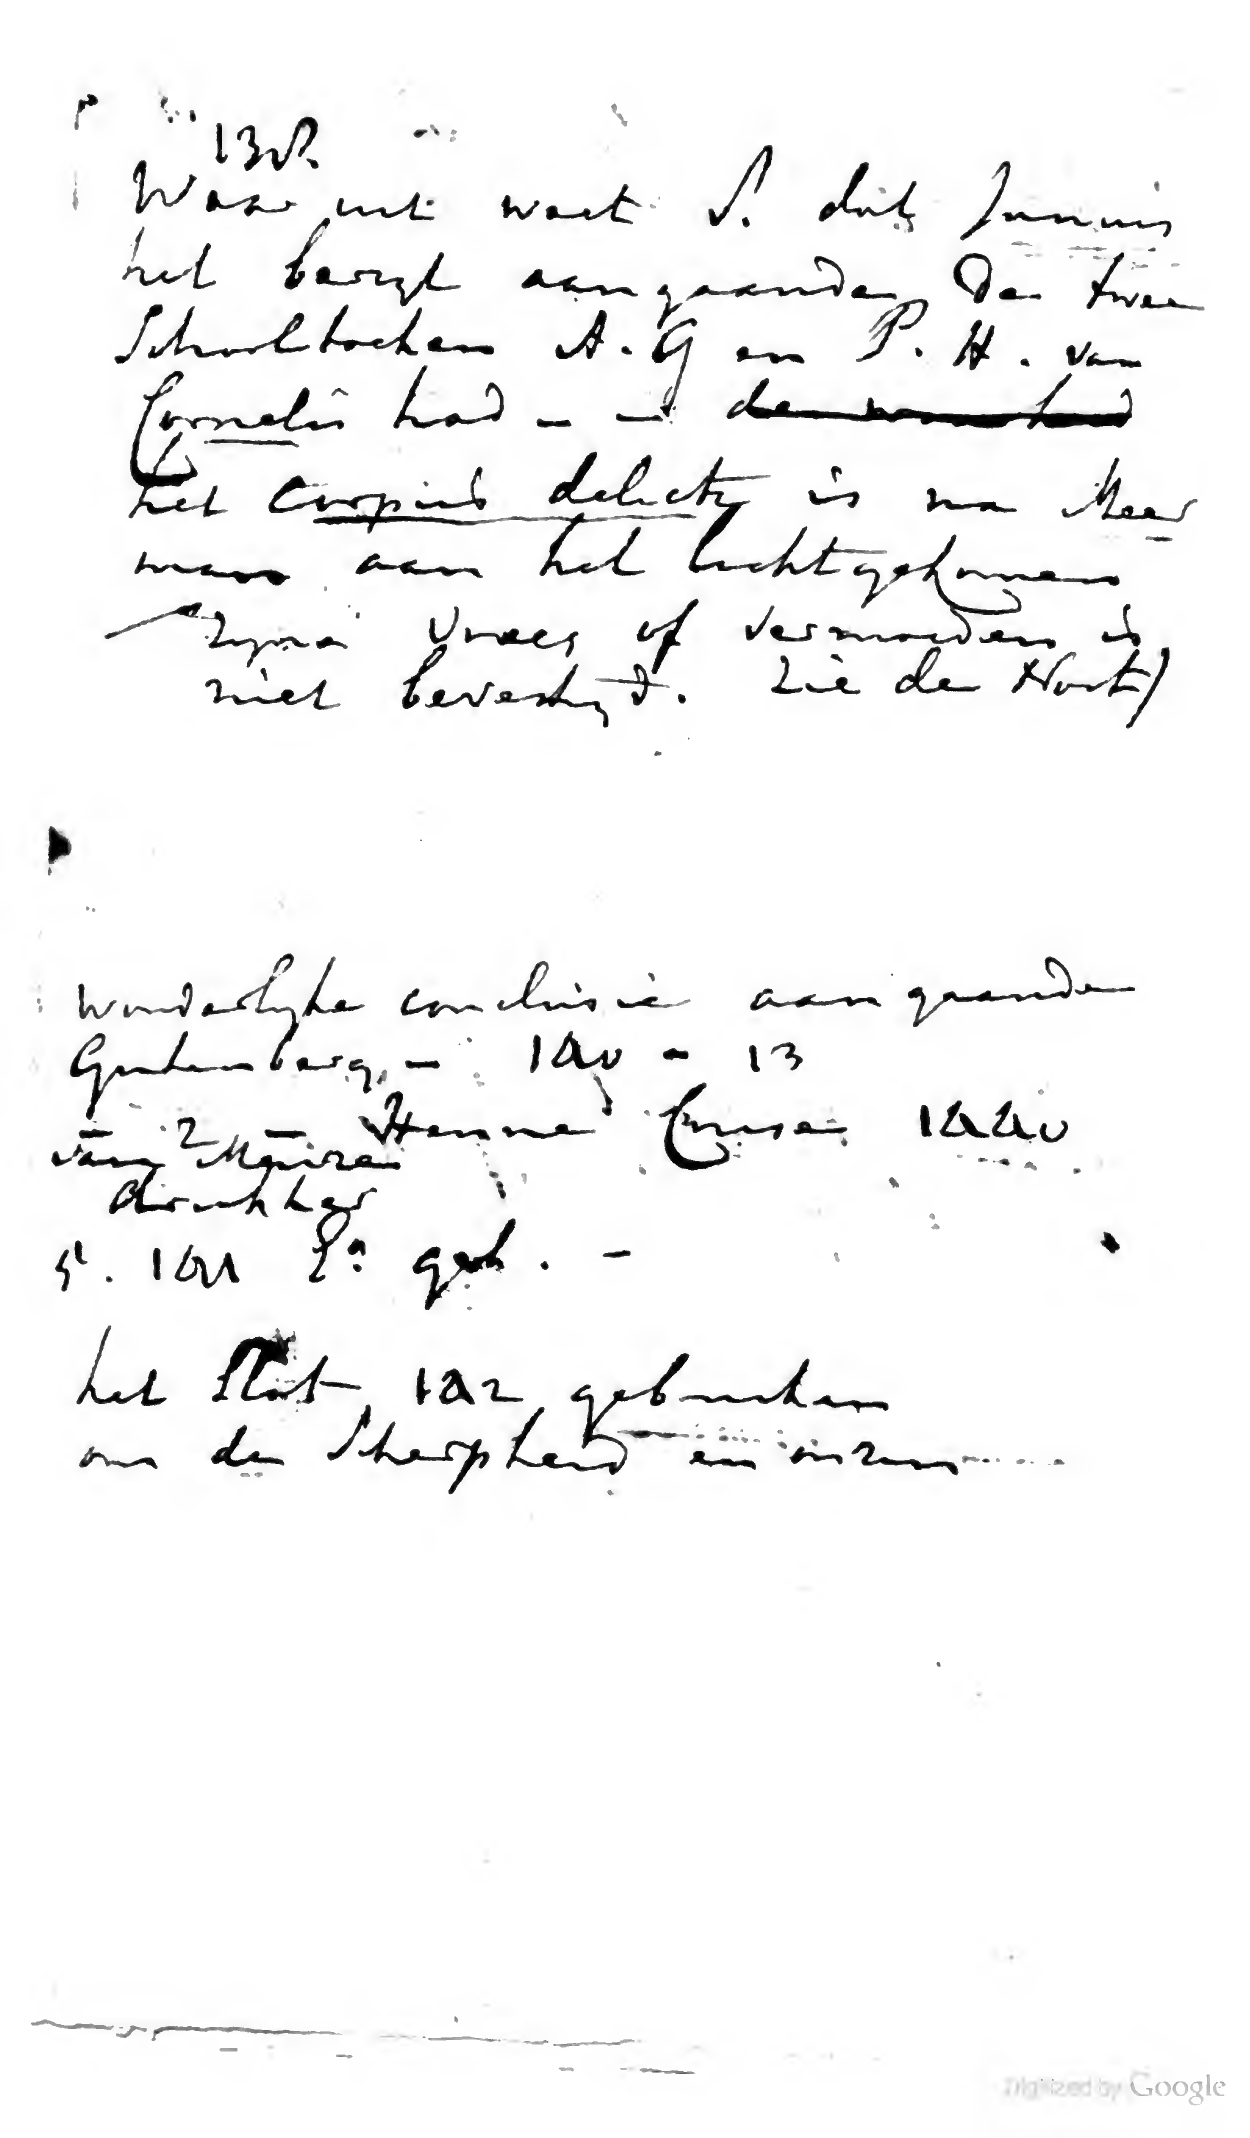 138.
Waar uit weet S. dat Junius
het berigt aangaande De twee
Schoolboeken A. G en P. H. van
Cornelis had - -
het Corpus delicti is na Meer
man aan het licht gekomen
zyne vrees of vermoeden is
niet bevestigd. Zie de Noot)
wonderlyke conclusie aangaande
Gutenberg - 140 - 13
- 2 - Henne Cruse 1440
van Meinze
drukker
141 geb. -
het Slot 142 gebruiken
om de Scherpheid en onzin
Digitized by Google